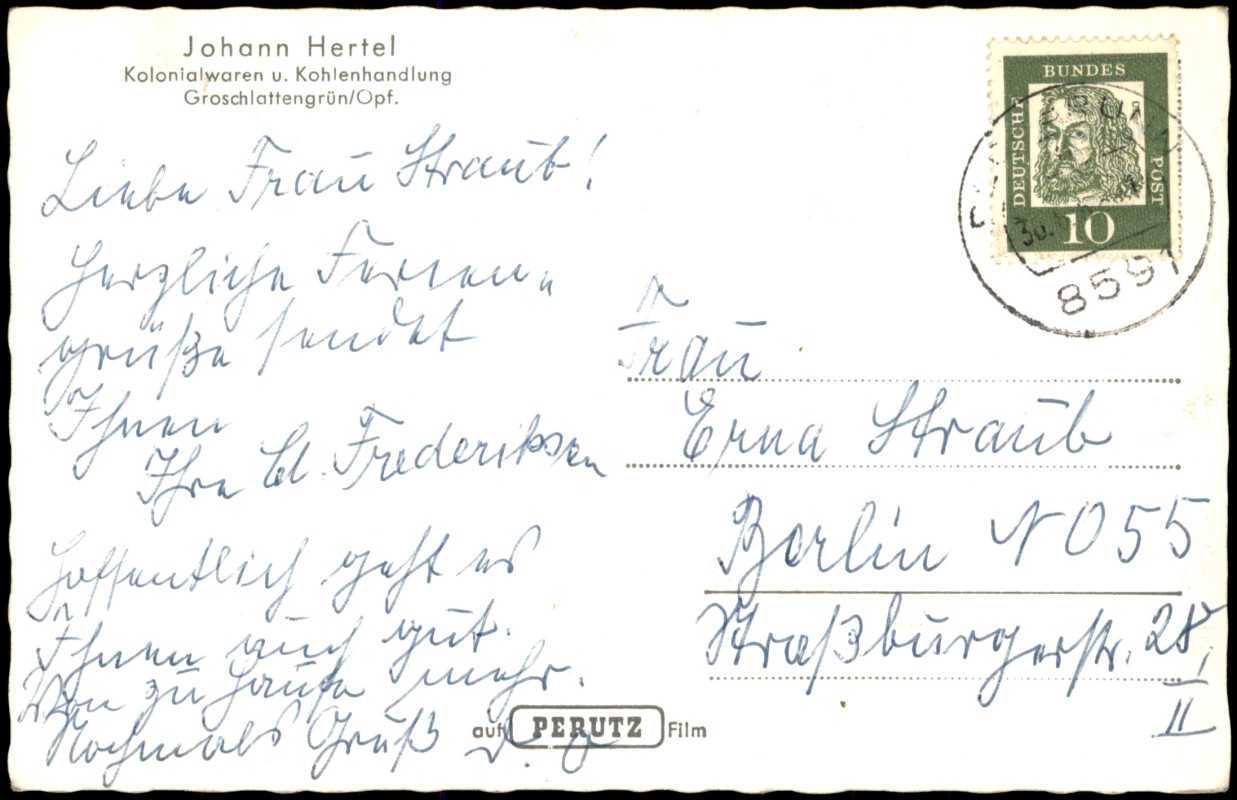 Johann Hertel
Kolonialwaren u. Kohlenhandlung
Groschlattengrün/Opf.
Liebe Frau Straub!
Herzliche Ferien-
grüße sendet
Ihnen
Ihre Cl. Frederiksen
Hoffentlich geht es
Ihnen auch gut.
Von zu Hause mehr.
Nochmals Gruß D. O
auf PERUTZ Film
DEUTSCHE BUNDES POST
10
8591
Frau
Erna Straub
Berlin NO 55
Straßburgerstr. 28
II